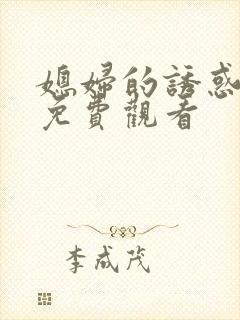 媳婦的誘惑
免費觀看
李成茂